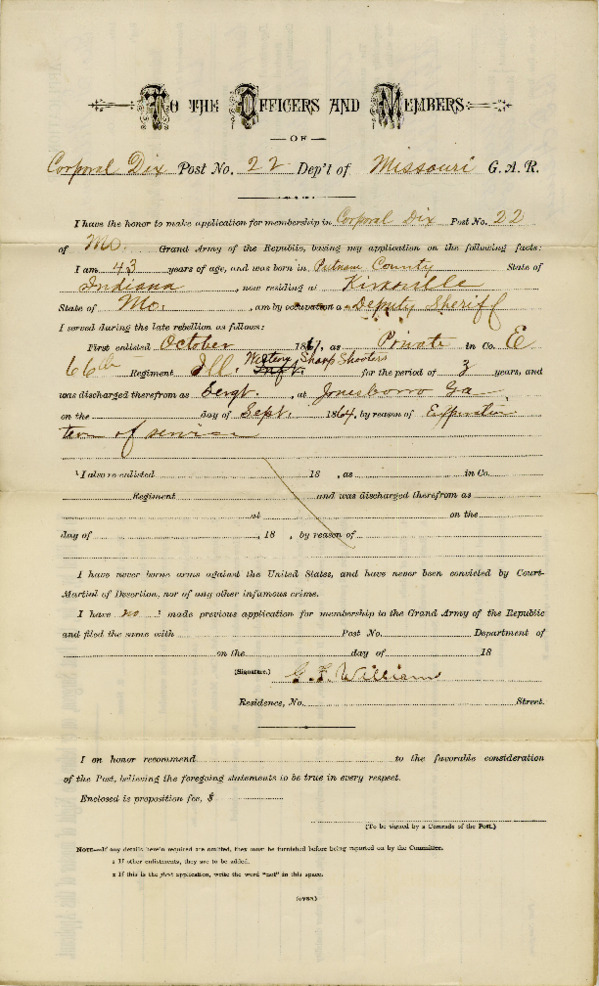 To the Officers and Members
— OF —
Corporal Dix Post No. 22 Dep't of Missouri G. A. R.
I have the honor to make application for membership in Corporal Dix Post No. 22
of Mo. Grand Army of the Republic, basing my application on the following facts:
I am 43 years of age, and was born in Putnam County State of
Indiana, now residing at Kirksville
State of Mo., am by occupation a Deputy Sheriff
I served during the late rebellion as follows:
First enlisted October 1861, as Private in Co. E
66th Regiment Ill. Western Sharp Shooters Inft. for the period of 3 years, and
was discharged therefrom as Sergt. at Jonesboro Ga
on the day of Sept. 1864, by reason of Expira
tion of service
¹ I also re-enlisted 18 , as in Co.
Regiment and was discharged therefrom as
at on the
day of , 18 , by reason of
I have never borne arms against the United States, and have never been convicted by Court-
Martial of Desertion, nor of any other infamous crime.
I have no ² made previous application for membership in the Grand Army of the Republic
and filed the same with Post No. Department of
on the day of 18
(Signature.) G. F. Williams
Residence, No. Street.
I on honor recommend to the favorable consideration
of the Post, believing the foregoing statements to be true in every respect.
Enclosed is proposition fee, $
(To be signed by a Comrade of the Post.)
NOTE—If any details herein required are omitted, they must be furnished before being reported on by the Committee.
1 If other enlistments, they are to be added.
2 If this is the first application, write the word "not" in this space.
(OVER.)